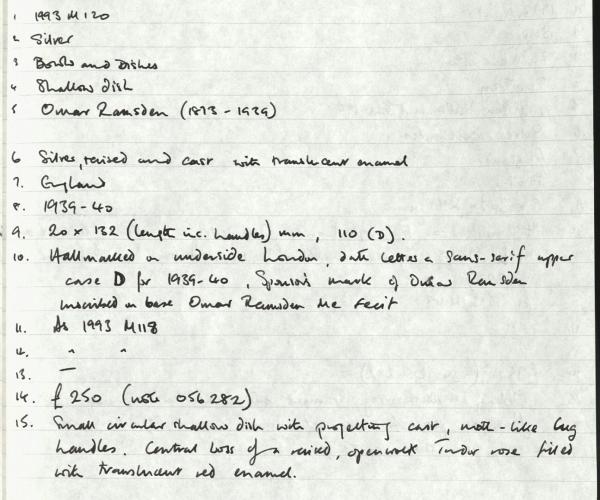 1 1993 M 120
2 Silver
3 Bowls and Dishes
4 Shallow dish
5 Omar Ramsden (1873 - 1939)
6 Silver, raised and cast with translucent enamel
7. England
8. 1939-40
9. 20 x 132 (length inc. handles) mm, 110 (D).
10. Hallmarked on underside London, date letter a Sans-serif upper
case D for 1939-40, Sponsor's mark of Omar Ramsden
inscribed on base Omar Ramsden Me Fecit
11. As 1993 M118
12. " "
13. —
14. £250 (note 056282)
15. Small circular shallow dish with projecting cast, moth-like lug
handles. Central boss of a raised, openwork Tudor rose filled
with translucent red enamel.